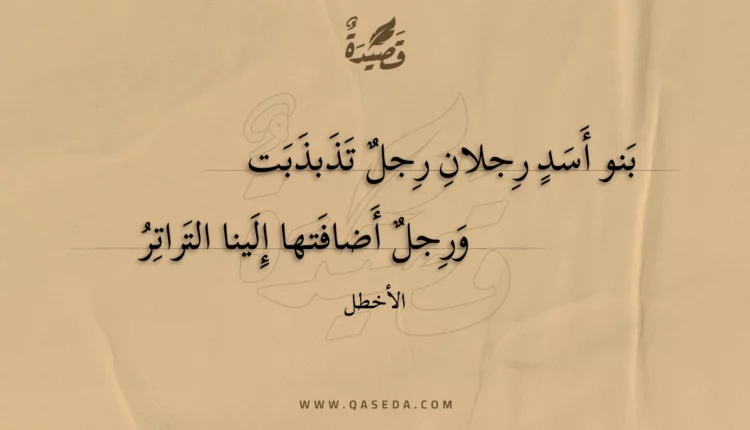 قَصِيْدَةٌ
بَنو أَسَدٍ رِجلانِ رِجلٌ تَذَبذَبَت
وَرِجلٌ أَضافَتها إِلَينا التَراتِرُ
الأخطل
WWW.QASEDA.COM